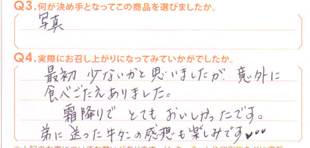 Q3.何が決め手となってこの商品を選びましたか。
写真
Q4.実際にお召し上がりになってみていかがでしたか。
最初 少ないかと思いましたが 意外に
食べごたえありました。
霜降りで とても おいしかったです。
弟に送った牛タンの感想も楽しみです♥♥♥